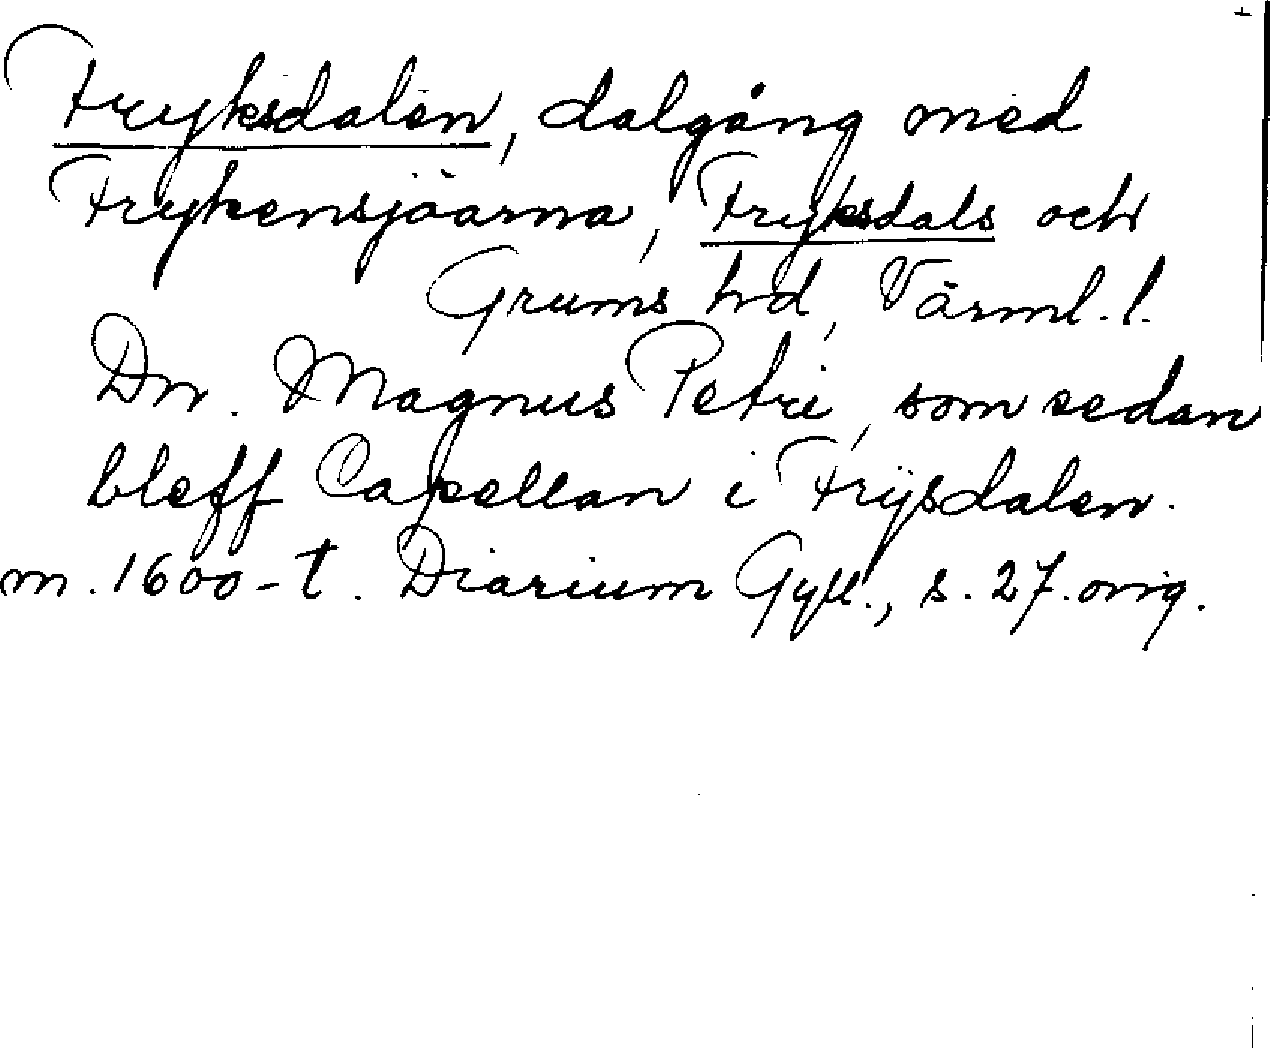 Fryksdalen, dalgång med
Frykensjöarna, Fryksdals och
Grums hd, Värml. l.
Dn. Magnus Petri, som sedan
bleff Capellan i Frijsdalen.
m. 1600-t. Diarium Gyll., s. 27. orig.